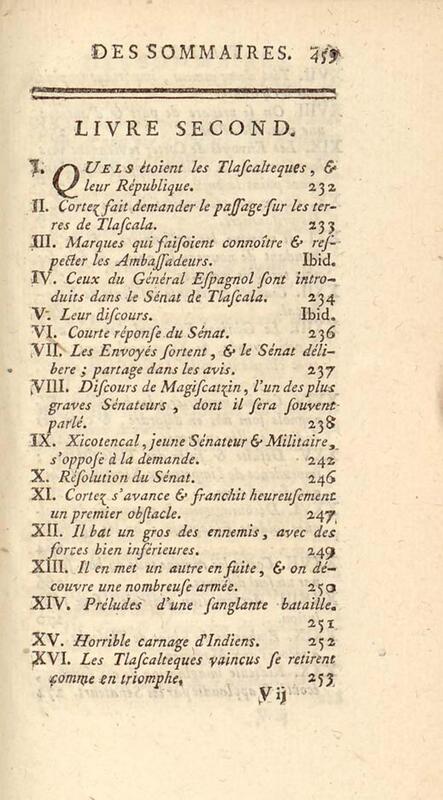 DES SOMMAIRES. 459
LIVRE SECOND.
I. QUELS étoient les Tlaſcalteques, &
leur République. 232
II. Cortez fait demander le paſſage ſur les ter-
res de Tlaſcala. 233
III. Marques qui faiſoient connoître & reſ-
pecter les Ambaſſadeurs. Ibid.
IV. Ceux du Général Eſpagnol ſont intro-
duits dans le Sénat de Tlaſcala. 234
V. Leur diſcours. Ibid.
VI. Courte réponſe du Sénat. 236
VII. Les Envoyés ſortent, & le Sénat déli-
bere ; partage dans les avis. 237
VIII. Diſcours de Magiſcatzin, l'un des plus
graves Sénateurs, dont il ſera ſouvent
parlé. 238
IX. Xicotencal, jeune Sénateur & Militaire,
s'oppoſe à la demande. 242
X. Réſolution du Sénat. 246
XI. Cortez s'avance & franchit heureuſement
un premier obſtacle. 247
XII. Il bat un gros des ennemis, avec des
forces bien inférieures. 249
XIII. Il en met un autre en fuite, & on dé-
couvre une nombreuſe armée. 250
XIV. Préludes d'une ſanglante bataille.
251
XV. Horrible carnage d'Indiens. 252
XVI. Les Tlaſcalteques vaincus ſe retirent
comme en triomphe. 253
V ij